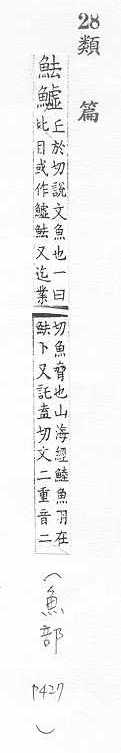 28 類篇
魼鱋
丘於切說文魚也一曰
比目或作鱋魼又迄業
切魚脅也山海經鯥魚羽在
魼下又託盍切文二重音二
(魚部 P427)